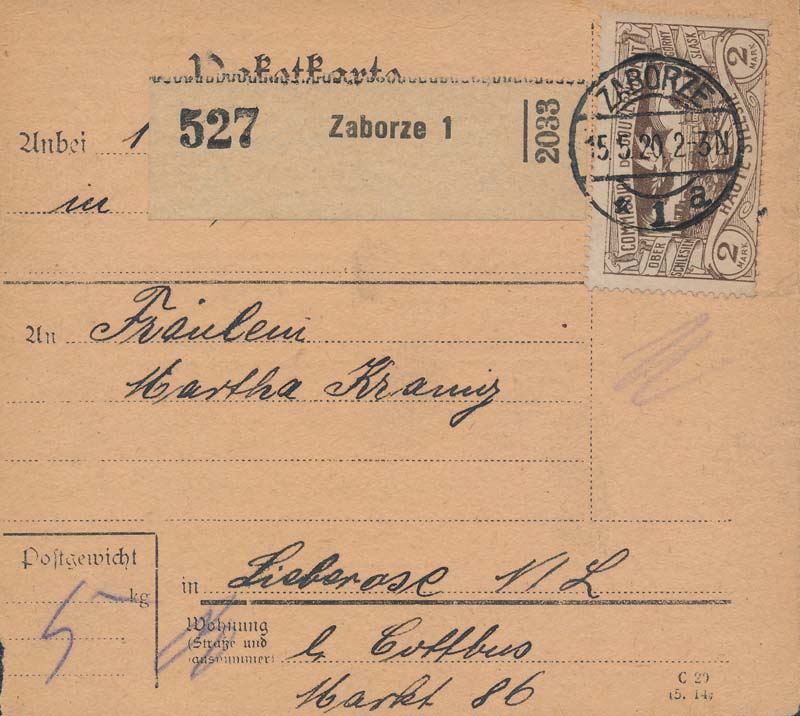 Paketkarte
527 Zaborze 1 2033
Anbei 1
in
ZABORZE
15.5.20. 2-3N
* 1 a
COMMISSION DE GOUV
HAUTE SILÉSIE
GÓRNY ŚLĄSK
OBER SCHLESIEN
2 MARK
2 MARK
An Fräulein
Martha Kraniz
Postgewicht
5 kg
in Lieberose N/L
Wohnung
(Straße und
Hausnummer)
b. Cottbus
Markt 86
C 29
(5. 14)